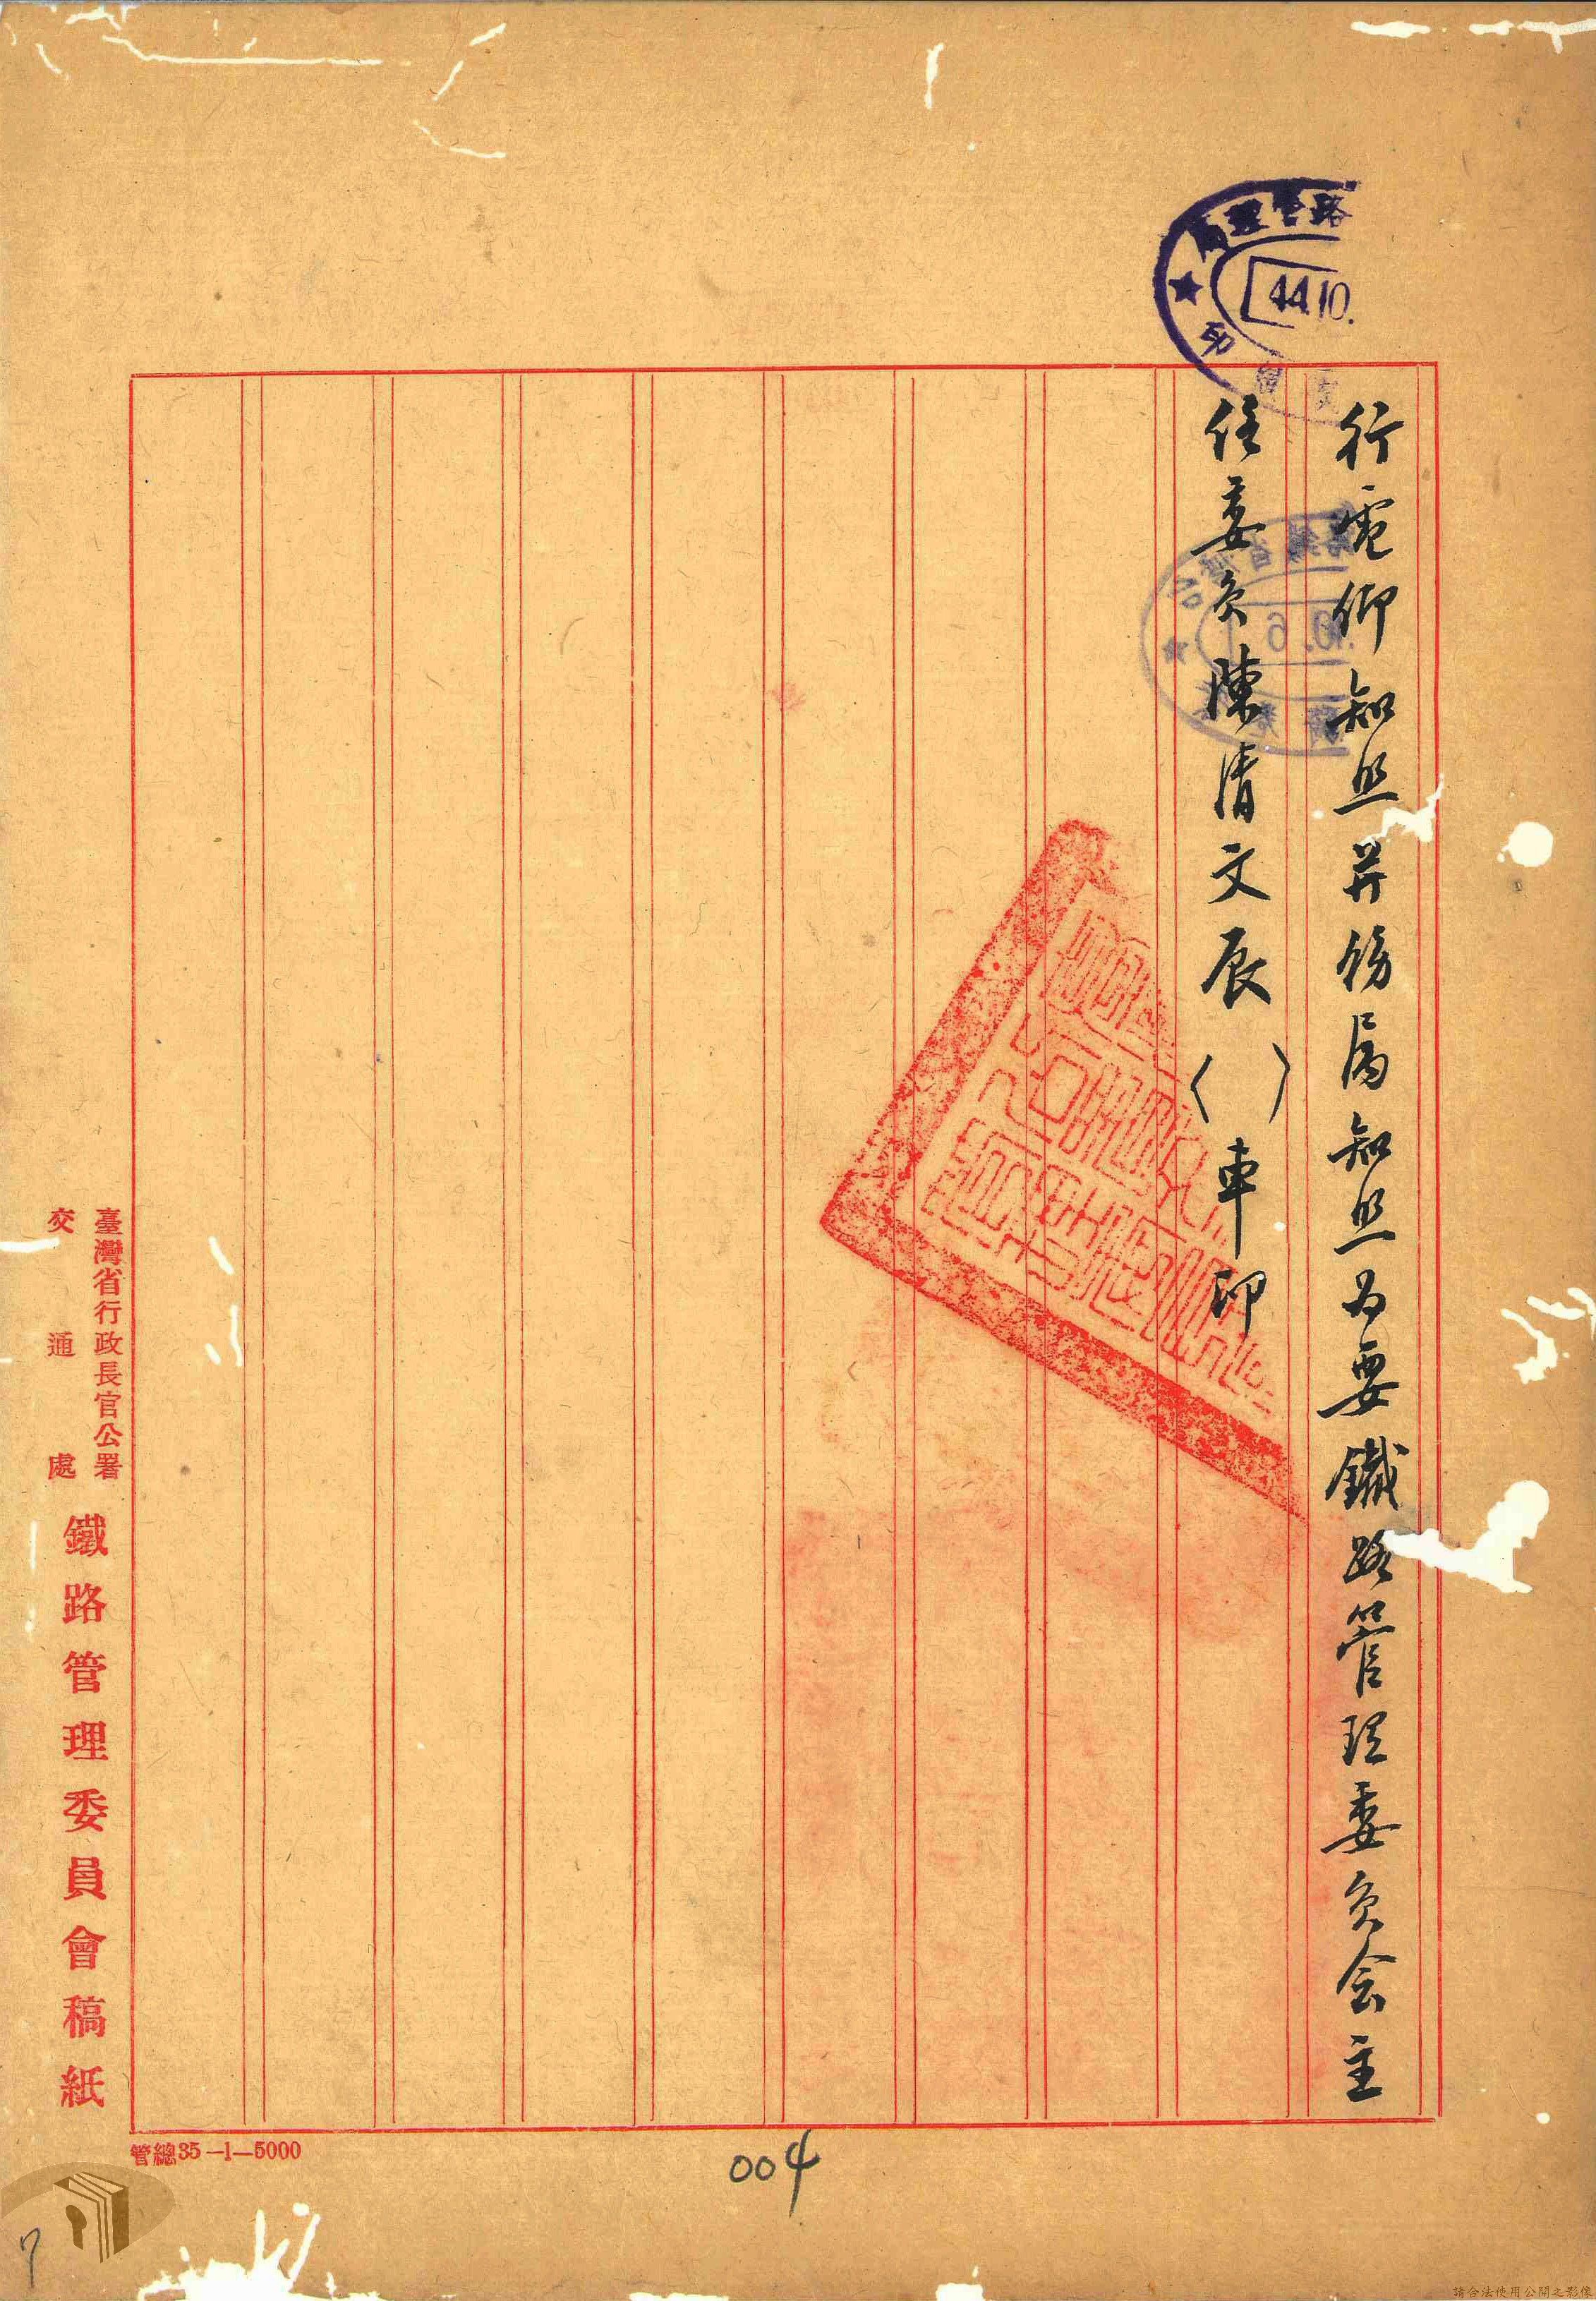 行電仰知照并飭屬知照為要鐵路管理委员会主
任委员陳清文辰（　）車印
臺灣省行政長官公署
交通處
鐵路管理委員會稿紙
管總35—1—5000
004
路管理局
44.10.
印
10.6
請合法使用公開之影像